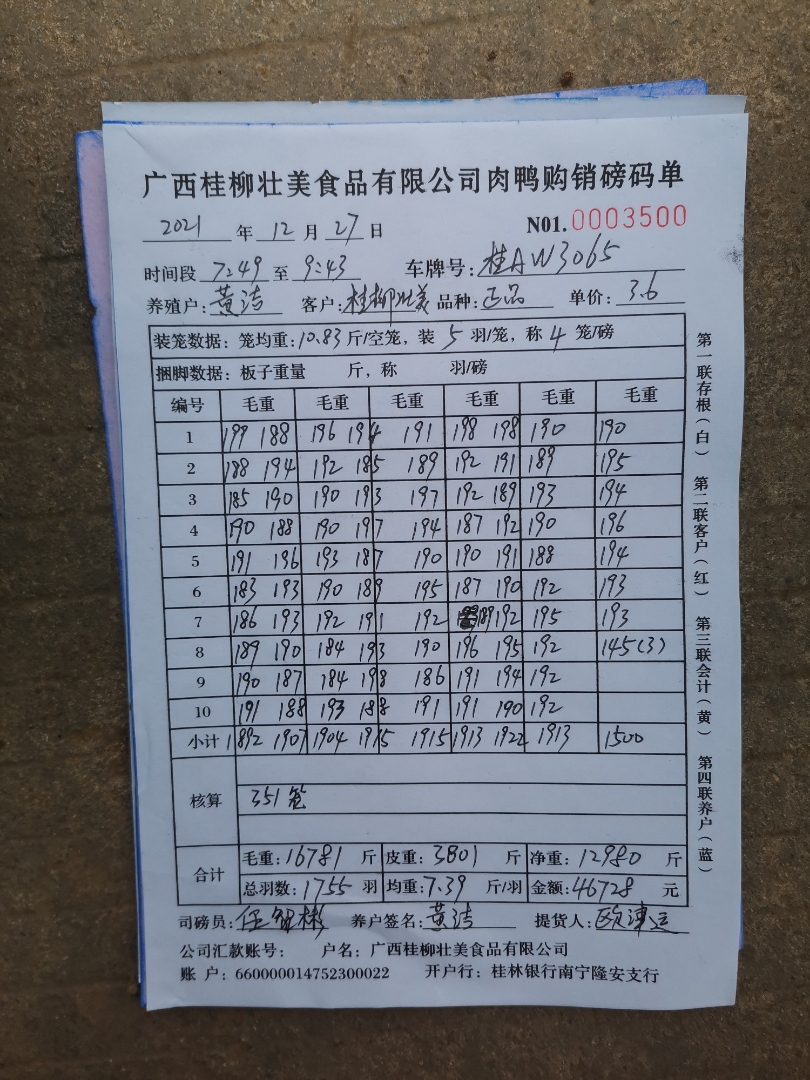 广西桂柳壮美食品有限公司肉鸭购销磅码单
2021 年 12 月 27 日 N01.0003500
时间段 7:49 至 9:43 车牌号: 桂AW3065
养殖户: 黄洁 客户: 桂柳壮美 品种: 正品 单价: 3.6
装笼数据: 笼均重: 10.83 斤/空笼, 装 5 羽/笼, 称 4 笼/磅
捆脚数据: 板子重量 斤, 称 羽/磅
编号 毛重 毛重 毛重 毛重 毛重 毛重
1 199 188 196 194 191 198 198 190 190
2 188 194 192 185 189 192 191 189 195
3 185 190 190 193 197 192 189 193 194
4 190 188 190 197 194 187 192 190 196
5 191 196 193 187 190 190 191 188 194
6 183 193 190 189 195 187 190 192 193
7 186 193 192 191 192 189 192 195 193
8 189 190 184 193 190 196 195 192 145(3)
9 190 187 184 198 186 191 194 192
10 191 188 193 188 191 191 190 192
小计 1892 1907 1904 1915 1915 1913 1922 1913 1500
核算 351笼
合计 毛重: 16781 斤 皮重: 3801 斤 净重: 12980 斤
总羽数: 1755 羽 均重: 7.39 斤/羽 金额: 46728 元
司磅员: 任智彬 养户签名: 黄洁 提货人:
公司汇款账号: 户名: 广西桂柳壮美食品有限公司
账 户: 660000014752300022 开户行: 桂林银行南宁隆安支行
第一联存根(白) 第二联客户(红) 第三联会计(黄) 第四联养户(蓝)